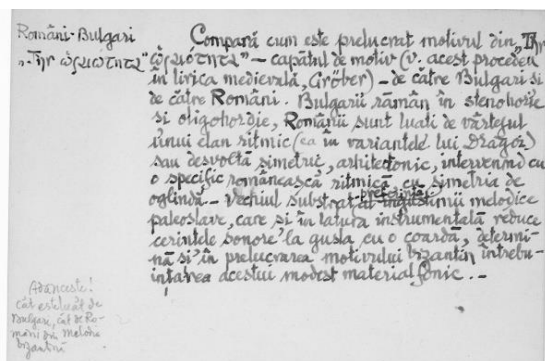 Români-Bulgari
„Τὴν ὡραιότητα"
Compară cum este prelucrat motivul din „Τὴν
ὡραιότητα" – capătul de motiv (v. acest procedeu
în lirica medievală, Gröber) – de către Bulgari si
de către Români. Bulgarii rămân în stenohorie
si oligohordie, Românii sunt luati de vârtejul
unui elan ritmic (ca în variantele lui Dragoz)
sau desvoltă simetric, arhitectonic, intervenind cu
o specific românească ritmică cu simetria de
oglindă. – Vechiul substrat al preferintii
îngustimii melodice
paleoslave, care si în latura instrumentală reduce
cerintele sonore la gusla cu o coardă, determi-
nă si în prelucrarea motivului bizantin întrebu-
intarea acestui modest material fonic. –
Adânceste!
cât este luat de
Bulgari, cât de Ro-
mâni din melodia
bizantină